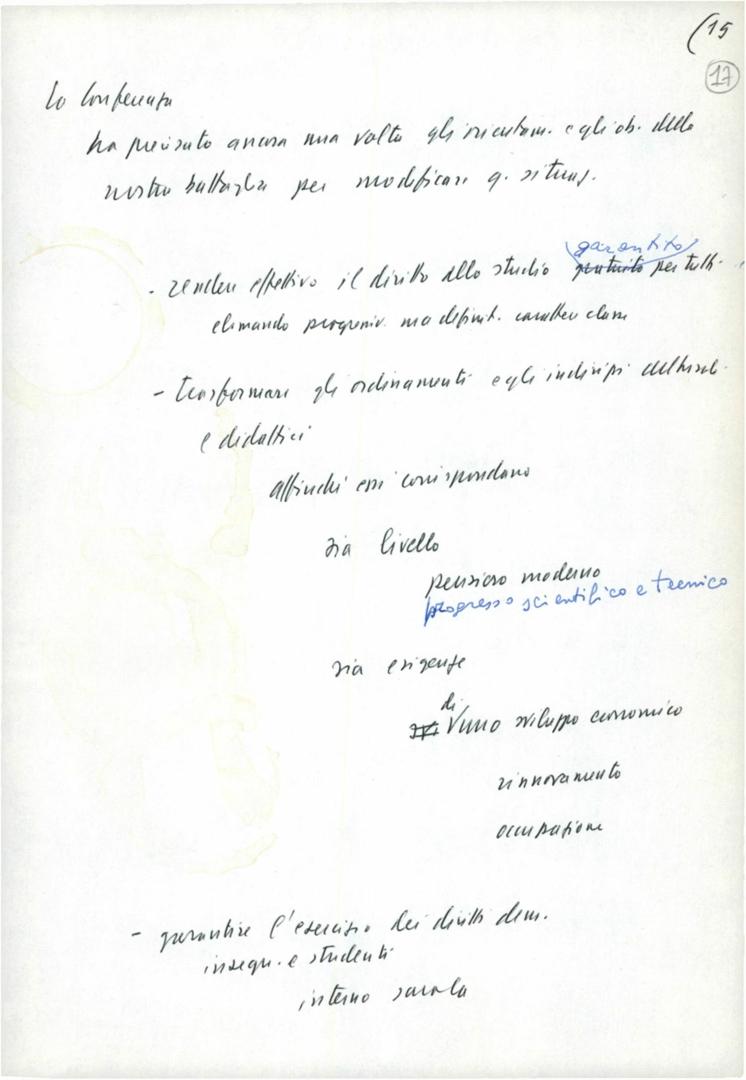 (15
17
La Conferenza
ha precisato ancora una volta gli orientam. e gli ob. della
nostra battaglia per modificare q. situaz.
garantito
- rendere effettivo il diritto allo studio gratuito per tutti
elimando progressiv. ma definit. carattere classe
- trasformare gli ordinamenti e gli indirizzi culturali
e didattici
affinché essi corrispondano
sia livello
pensiero moderno
progresso scientifico e tecnico
sia esigenze
di
uno sviluppo economico
rinnovamento
occupazione
- garantire l'esercizio dei diritti dem.
insegn. e studenti
interno scuola